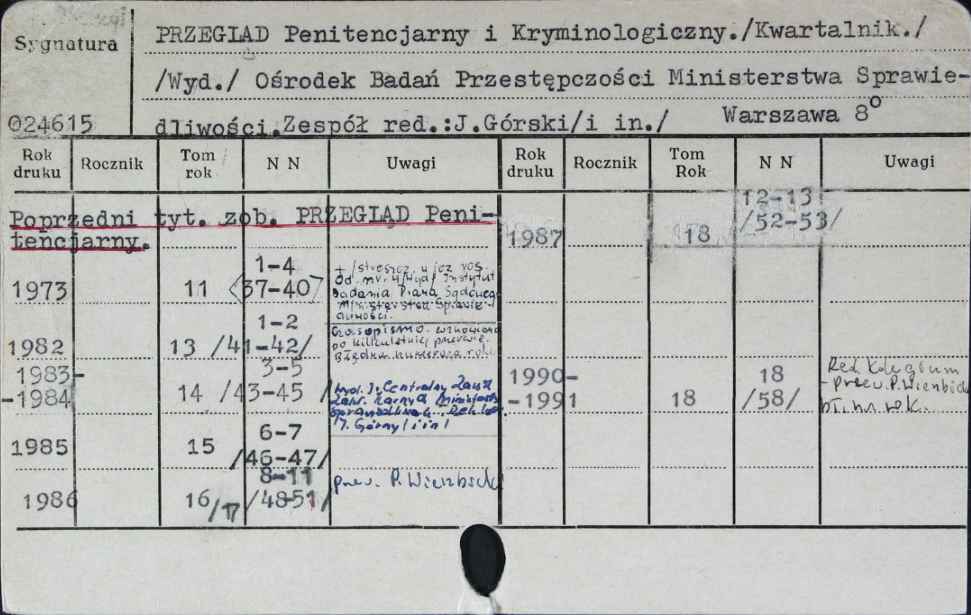 Sygnatura
PRZEGLĄD Penitencjarny i Kryminologiczny./Kwartalnik./
/Wyd./ Ośrodek Badań Przestępczości Ministerstwa Sprawie-
024615
dliwości. Zespół red.:J.Górski/i in./ Warszawa 8°
Rok druku Rocznik Tom rok N N Uwagi Rok druku Rocznik Tom Rok N N Uwagi
Poprzedni tyt. zob. PRZEGLĄD Peni-
tencjarny.
1973 11 1-4 /37-40/
+ /streszcz. w jęz. ros.
Od nr. 4/Wyd/ Instytut
Badania Prawa Sądowego
Ministerstwa Sprawie-
dliwości.
1982 13 1-2 /41-42/
Czasopismo wznowiono
po kilkuletniej przerwie.
Błędna numeracja roku
1983-
-1984 14 3-5 /43-45/
Wyd.: Centralny Zarząd
Zakł. Karnych Ministerst.
Sprawiedliwości. Red.
Górny/i in/
1985 15 6-7 /46-47/
1986 16/17 8-11 /48-51/
przew. P. Wierzbicki
1987 18 12-13 /52-53/
1990-
-1991 18 18 /58/
Red. Kolegium
- przew. P. Wierzbicki
bł. nr. rok.